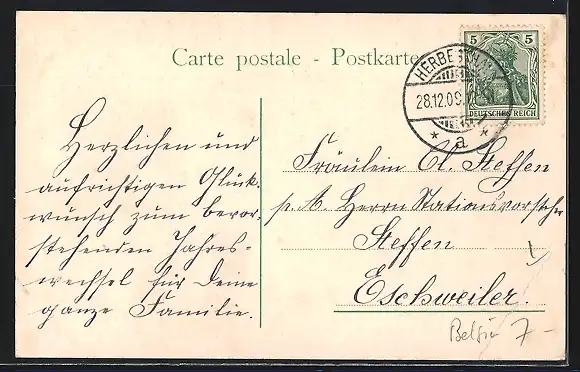 Carte postale - Postkarte
5 5
DEUTSCHES REICH
28.12.09
* a *
Herzlichen und
aufrichtigen Glück-
wunsch zum bevor-
stehenden Jahres-
wechsel für Deine
ganze Familie.
Fräulein Cl. Steffen
p. A. Herrn Stationsvorsteher
Steffen
Eschweiler.
7-